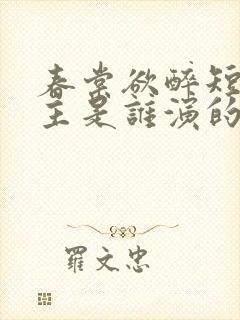 春棠欲醉短
主是誰演的
羅文忠